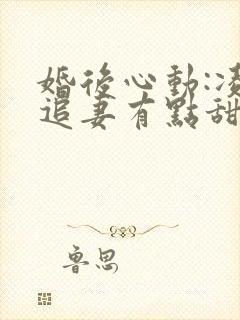 婚後心動:凌
追妻有點甜
魯思